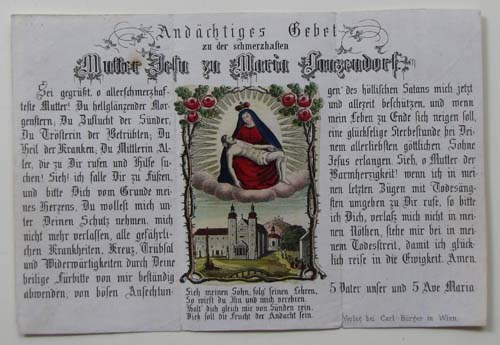 Andächtiges Gebet
zu der schmerzhaften
Mutter Jesu zu Maria Lanzendorf.
Sei gegrüßt, o allerschmerzhaf-
teste Mutter! Du hellglänzender Mor-
genstern, Du Zuflucht der Sünder,
Du Trösterin der Betrübten; Du
Heil der Kranken, Du Mittlerin Al-
ler, die zu Dir rufen und Hilfe su-
chen! Sieh! ich falle Dir zu Füßen,
und bitte Dich vom Grunde mei-
nes Herzens, Du wollest mich un-
ter Deinen Schutz nehmen, mich
nicht mehr verlassen, alle gefährli-
chen Krankheiten, Kreuz, Trübsal
und Widerwärtigkeiten durch Deine
heilige Fürbitte von mir beständig
abwenden, von bösen Anfechtun-
gen des höllischen Satans mich jetzt
und allezeit beschützen, und wenn
mein Leben zu Ende sich neigen soll,
eine glückselige Sterbestunde bei Dei-
nem allerliebsten göttlichen Sohne
Jesus erlangen. Sieh, o Mutter der
Barmherzigkeit! wenn ich in mei-
nen letzten Zügen mit Todesäng-
sten umgeben zu Dir rufe, so bitte
ich Dich, verlaß mich nicht in mei-
nen Nöthen, stehe mir bei in mei-
nem Todesstreit, damit ich glück-
lich reise in die Ewigkeit. Amen.
5 Vater unser und 5 Ave Maria
Sieh meinen Sohn, folg' seinen Lehren,
So wirst du Ihn und mich verehren.
Wollt' dich gleich mir von Sünden rein.
Dieß soll die Frucht der Andacht sein.
Verlag bei Carl Bürger in Wien.